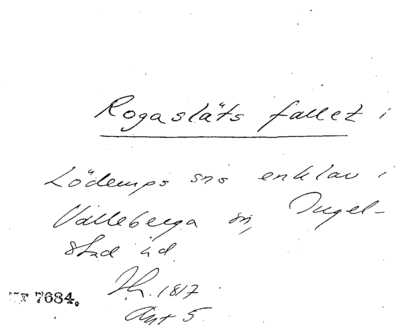 Rogasläts fallet i
Lödemps sns enklav i
Valleberga sn, Ingel-
stad hd.
Ih. 1817
Akt 5
7684.